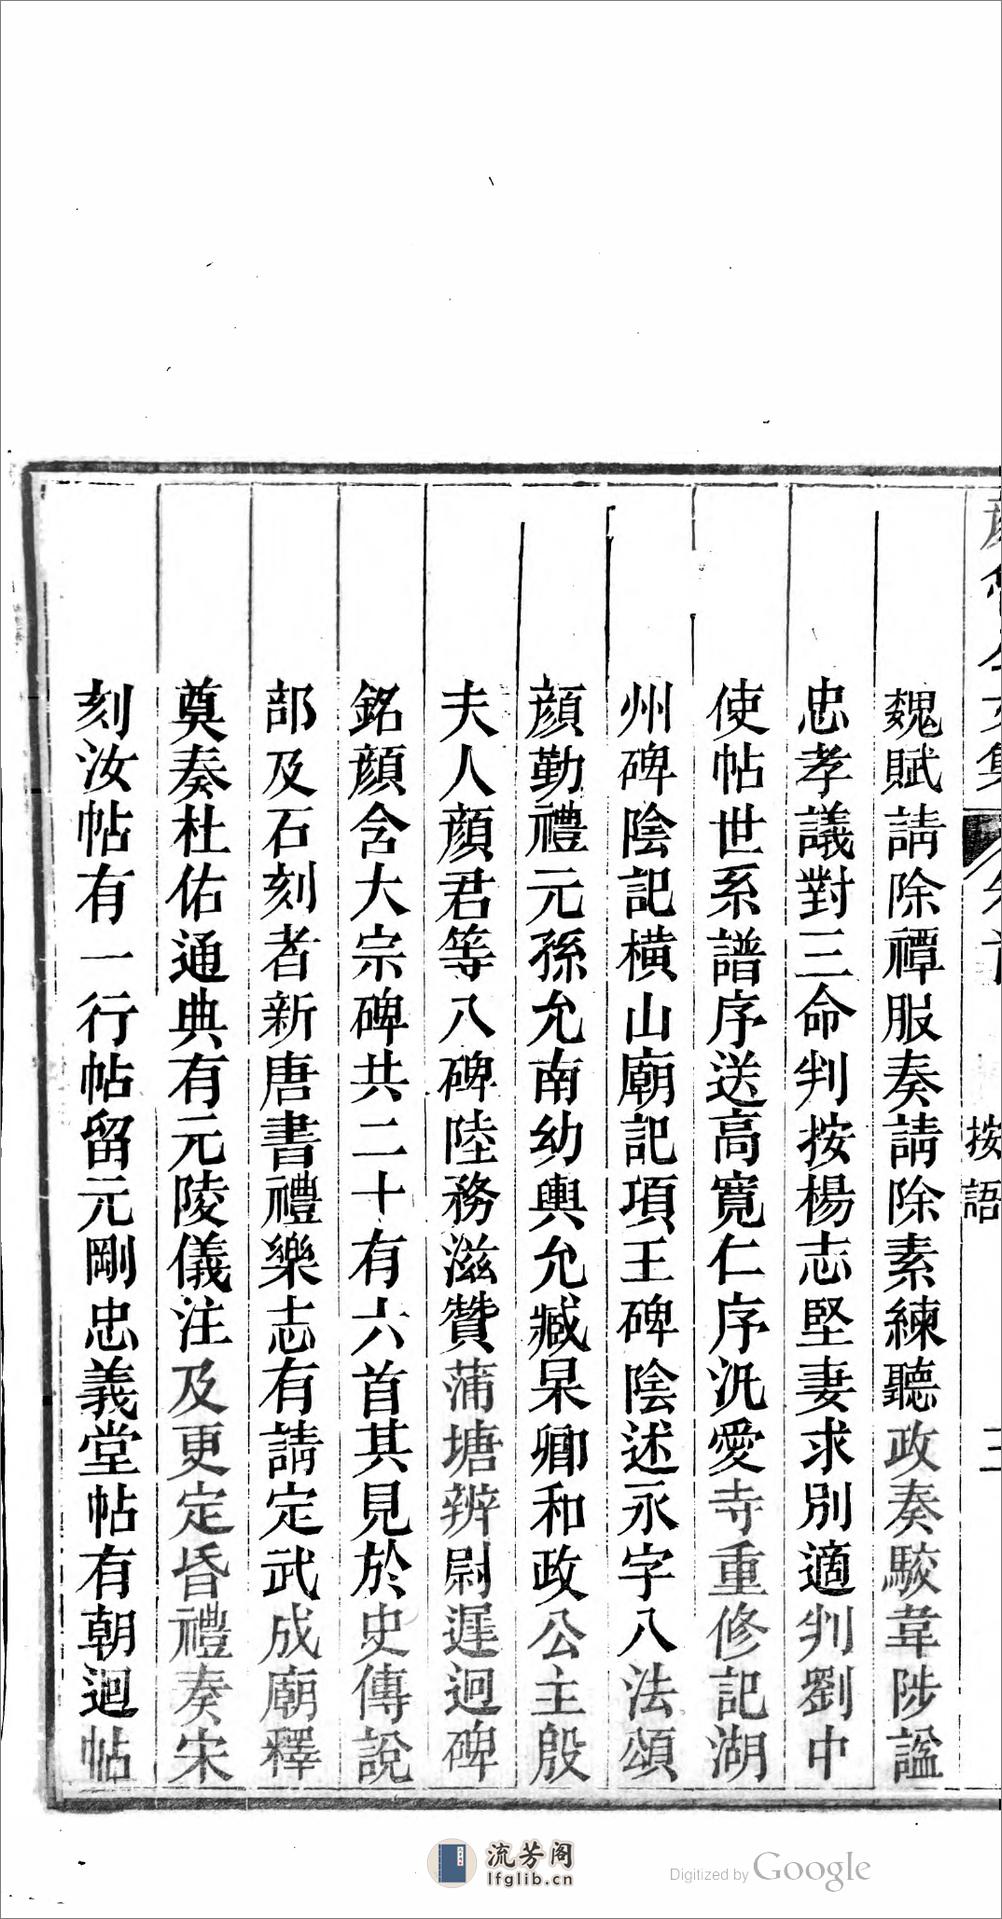 魏賦請除禫服奏請除素練聽政奏駮韋陟諡
忠孝議對三命判按楊志堅妻求別適判劉中
使帖世系譜序送高寬仁序汎愛寺重修記湖
州碑陰記橫山廟記項王碑陰述永字八法頌
顔勤禮元孫允南幼輿允臧杲卿和政公主殷
夫人顔君等八碑陸務滋贊蒲塘辨尉遲迥碑
銘顔含大宗碑共二十有六首其見於史傳說
部及石刻者新唐書禮樂志有請定武成廟釋
奠奏杜佑通典有元陵儀注及更定昏禮奏宋
刻汝帖有一行帖留元剛忠義堂帖有朝迴帖
按語
三
流芳阁
lfglib.cn
Digitized by Google